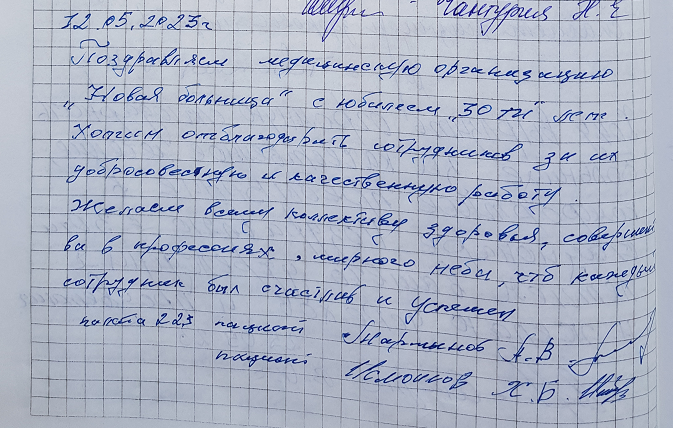 Чантурия Н. Е
12.05.2023г
Поздравляем медицинскую организацию
„Новая больница" с юбилеем „30 ти" лет.
Хотим отблагодарить сотрудников за их
добросовестную и качественную работу.
Желаем всему коллективу здоровья, совершенст
ва в профессиях, мирного неба, чтоб каждый
сотрудник был счастлив и успешен
палата 223 пациент Мартынов А.В
пациент Исмоилов Х.Б.